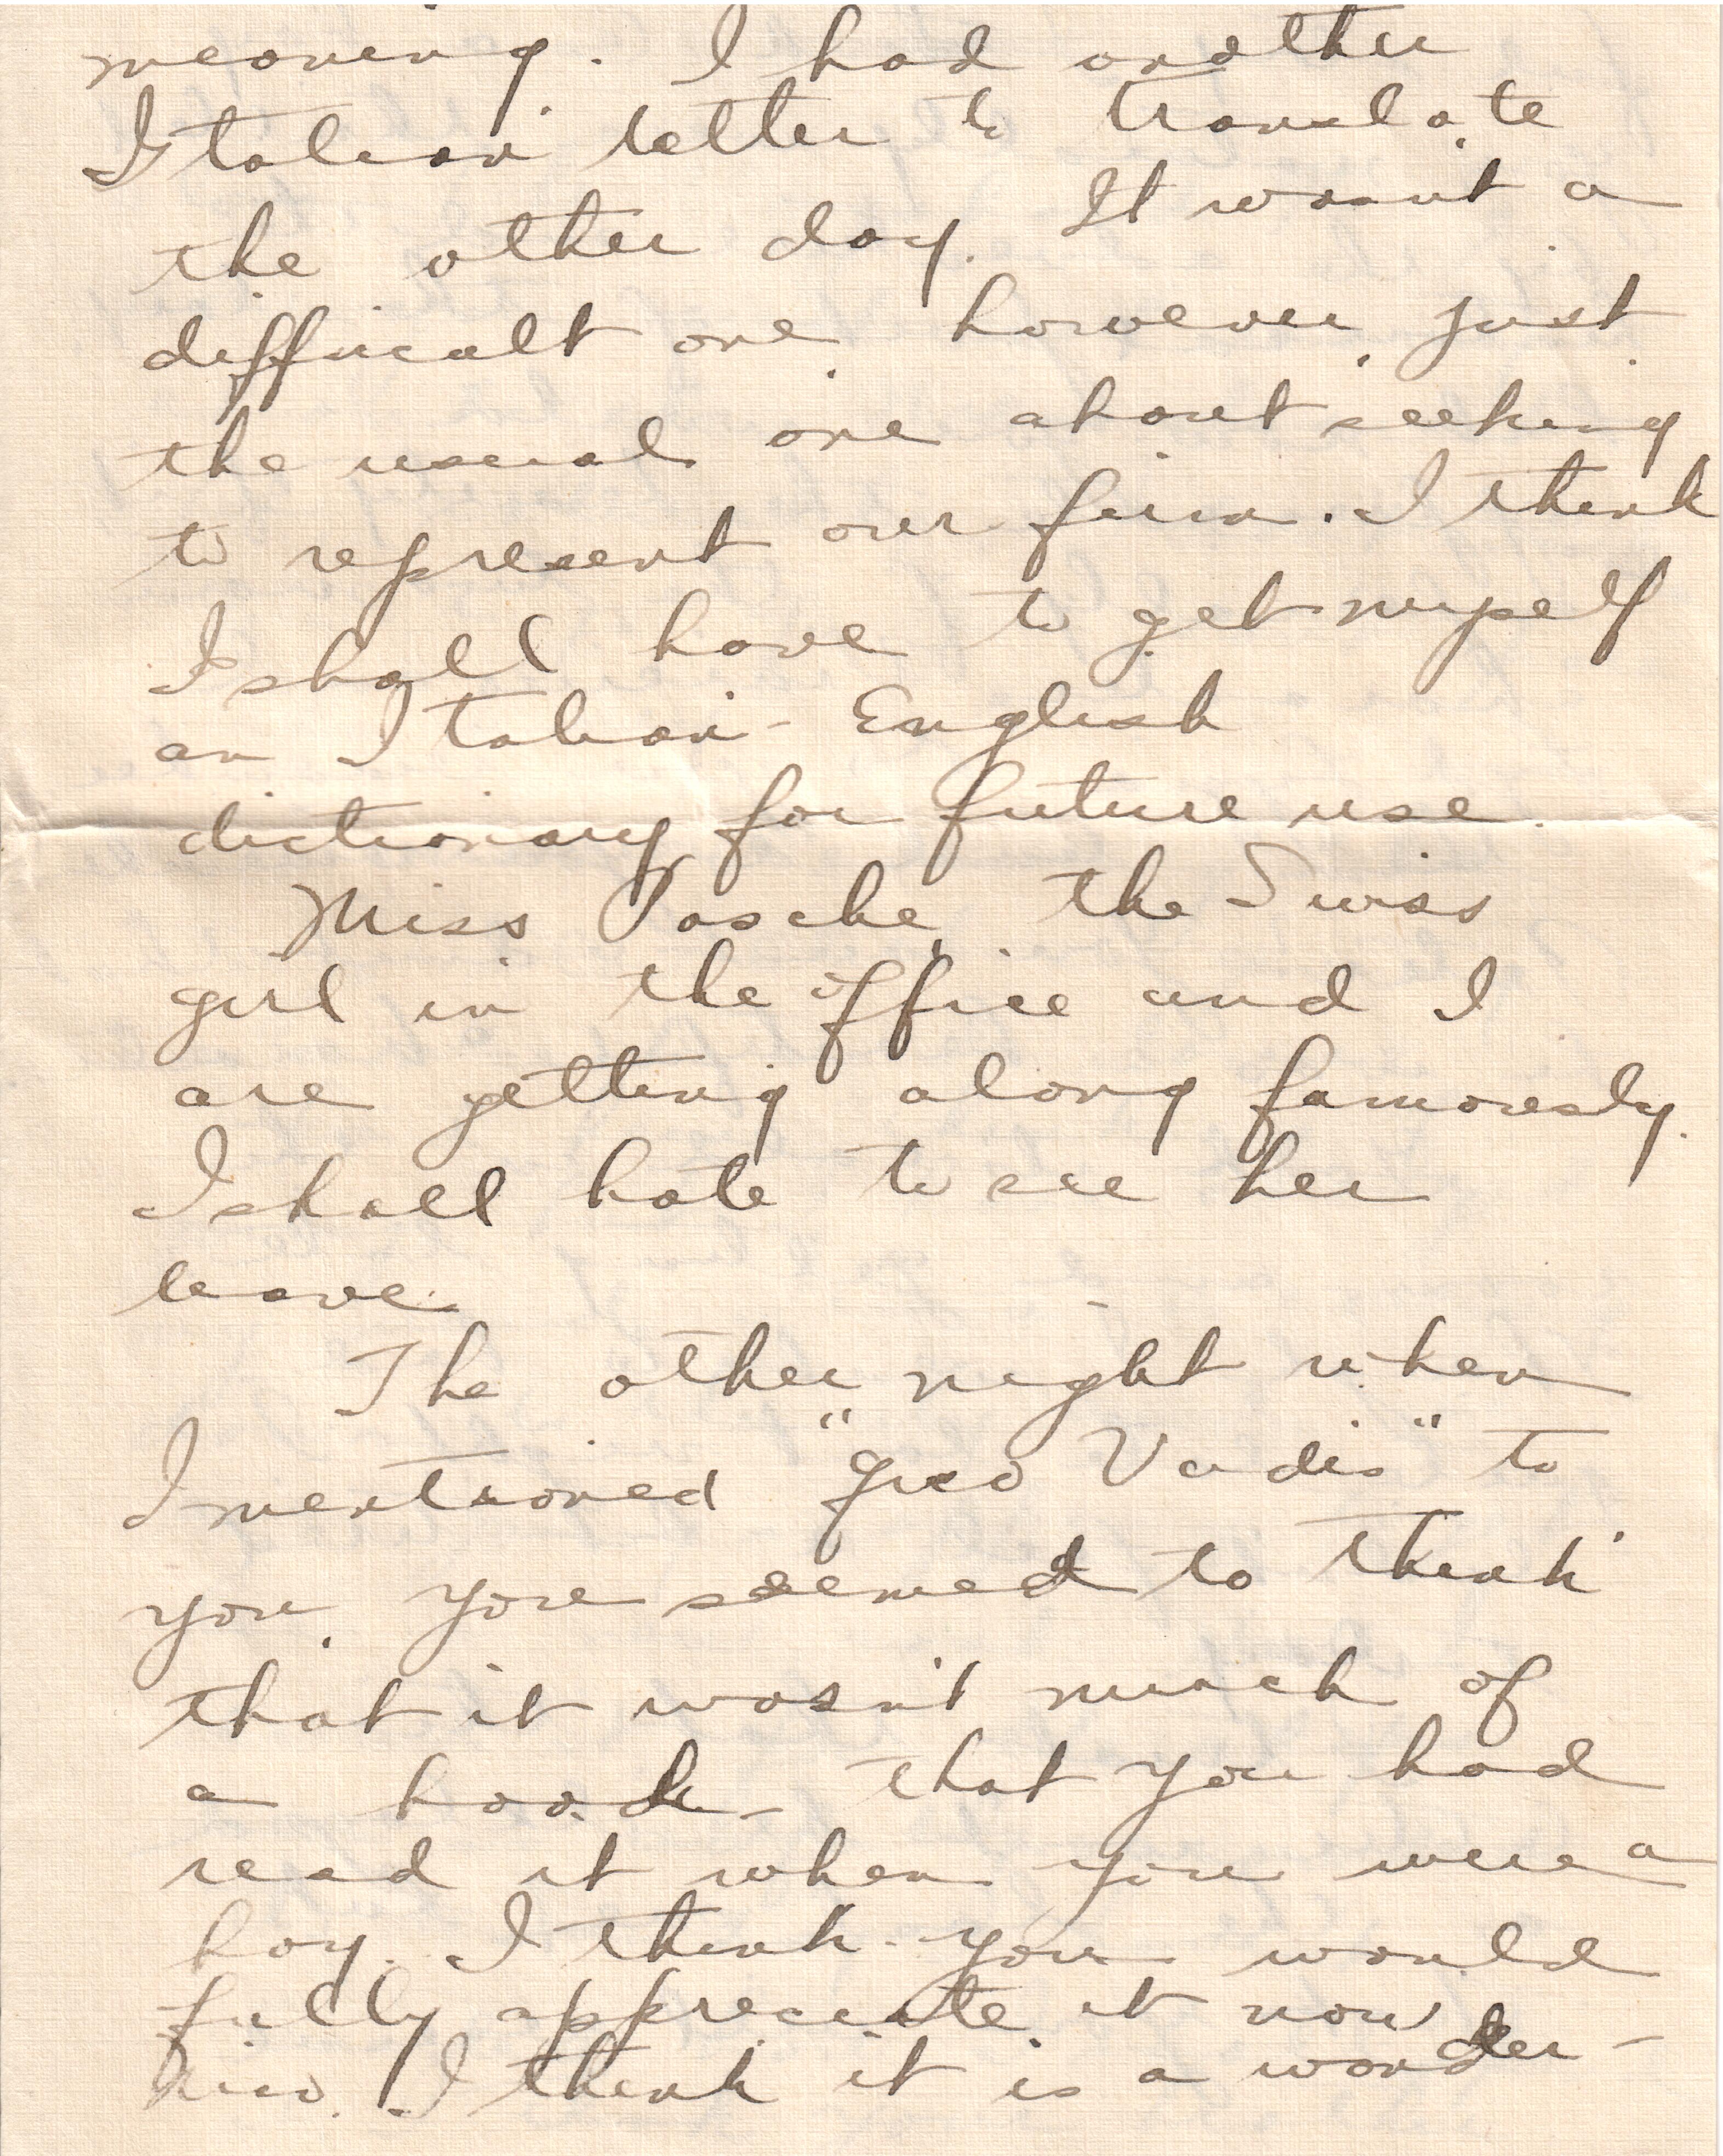 meaning. I had another
Italian letter to translate
the other day. It wasnt a
difficult one, however, just
the usual one about seeking
to represent our firm. I think
I shall have to get myself
an Italian-English
dictionary for future use.
Miss Pasche, the Swiss
girl in the office and I
are getting along famously.
I shall hate to see her
leave.
The other night when
I mentioned "Quo Vadis" to
you, you seemed to think
that it wasn't much of
a book - that you had
read it when you were a
boy. I think you would
fully appreciate it now
I think it is a wonder-